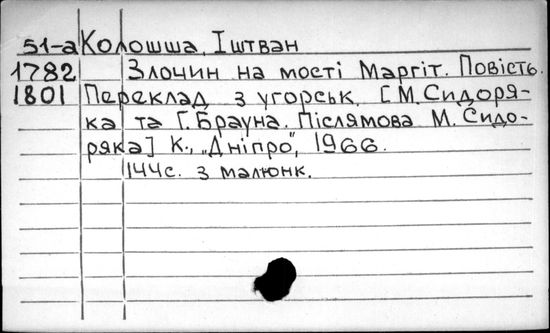 51-а Колошша, Іштван
1782 Злочин на мості Маргіт. Повість.
1801 Переклад з угорськ. [М. Сидоря-
ка та Г. Брауна. Післямова М. Сидо-
ряка] К., „Дніпро", 1966.
144с. з малюнк.